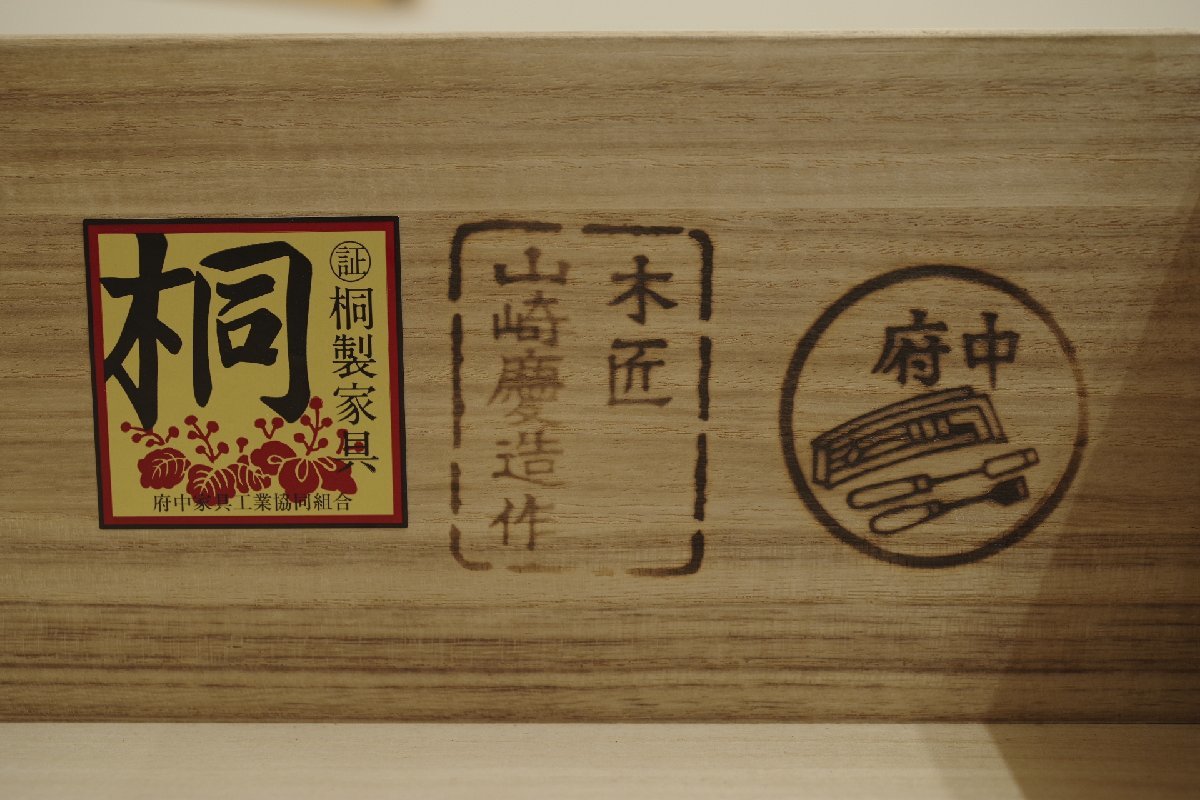 桐
証
桐製家具
府中家具工業協同組合
木匠
山崎慶造作
府中